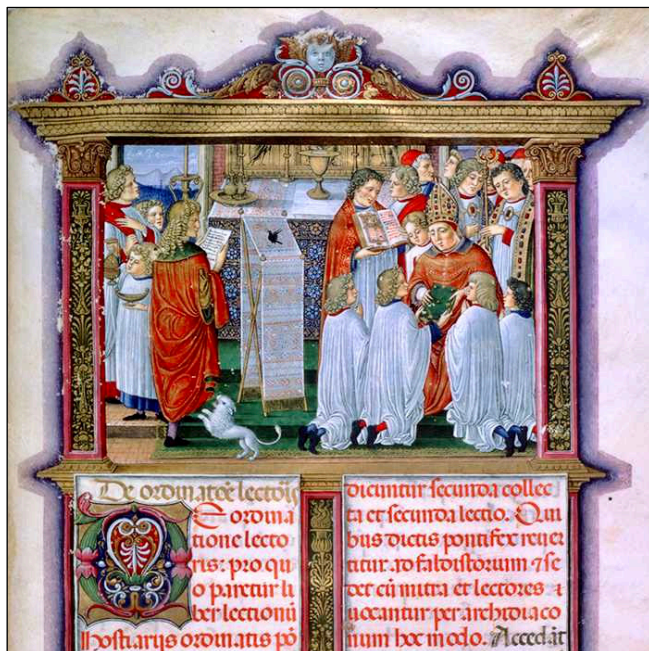 De ordinatõe lectoris
De ordina
tione lecto
ris: pro qu
o paretur li
ber lectionũ
hostiarijs ordinatis põ
dicuntur secunda collec
ta et secunda lectio. Qui
bus dictis pontifex rever
titur ad faldistorium ⁊ se
det cũ mitra et lectores
uocantur per archidiaco
num hoc modo. Accedãt